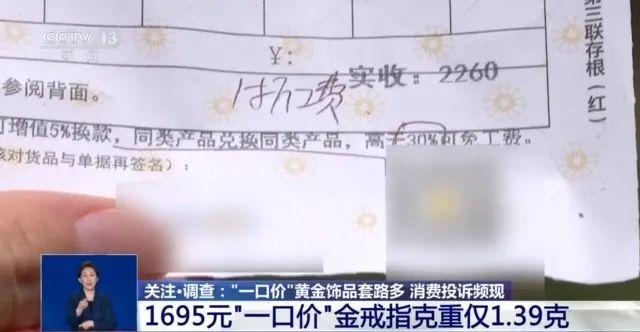 CCTV 13
新闻
第三联存根（红）
¥:
实收：2260
费
参阅背面。
增值5%换款，同类产品兑换同类产品，高于30%可免工费。
对货品与单据再签名）：
关注·调查："一口价"黄金饰品套路多 消费投诉频现
1695元"一口价"金戒指克重仅1.39克